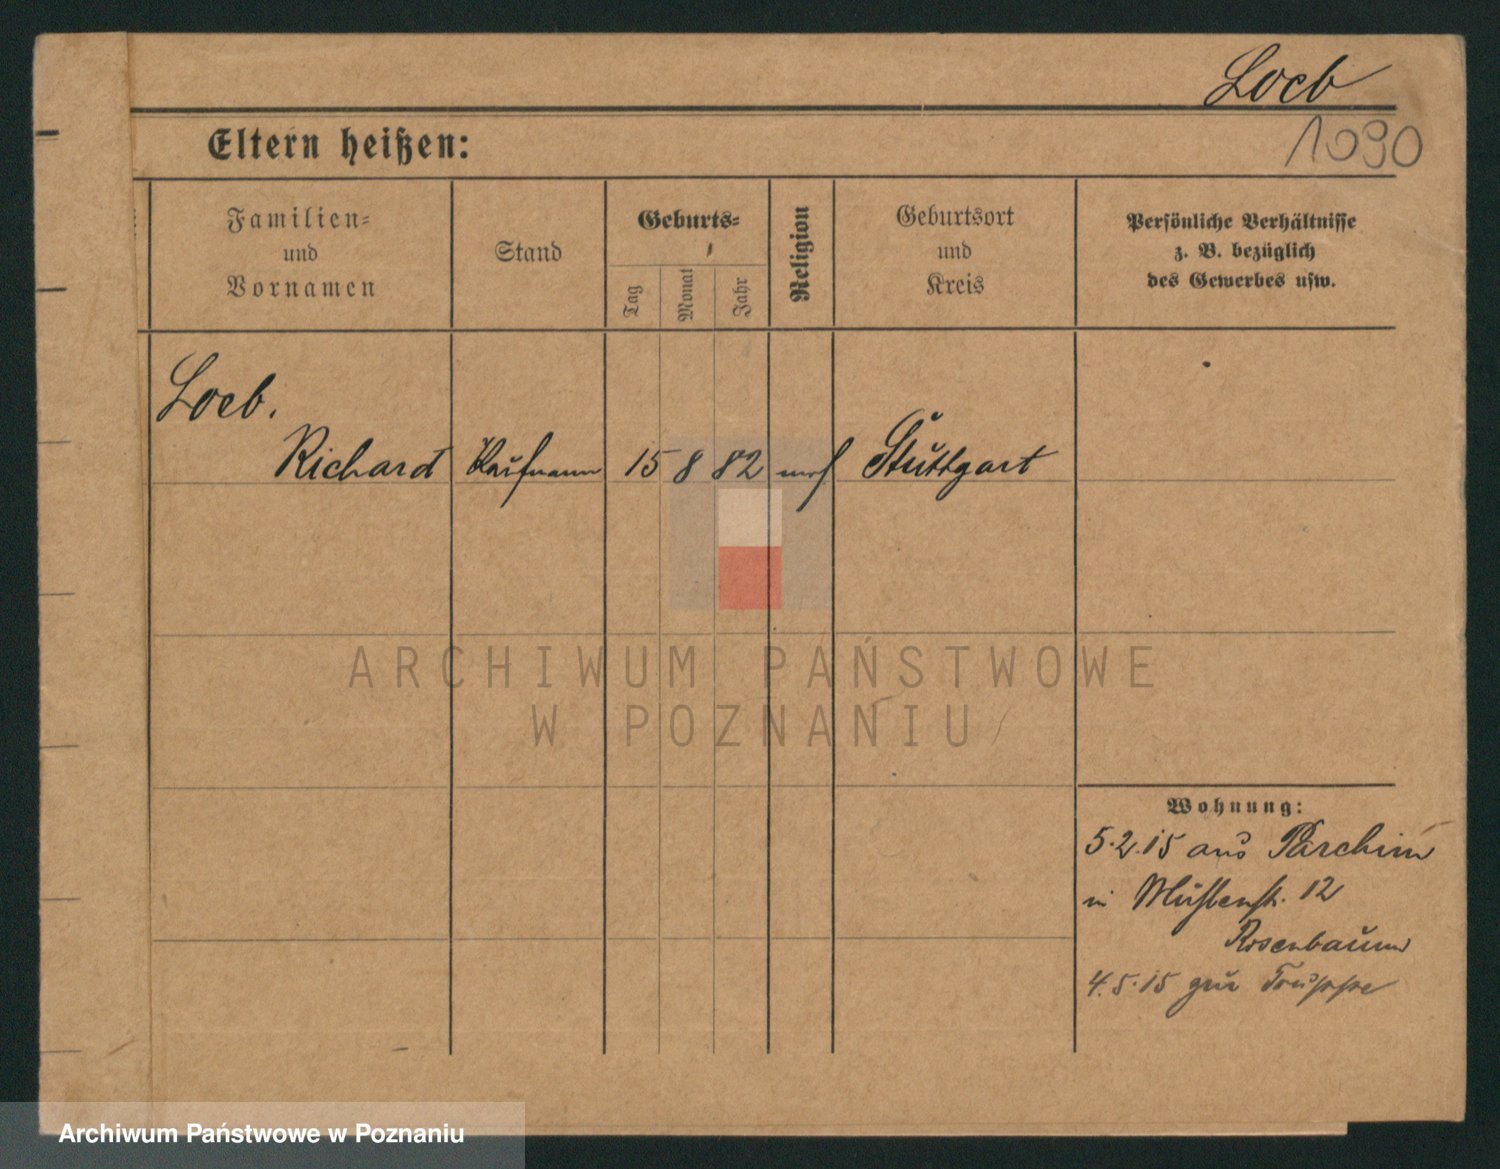 Loeb
1090
Eltern heißen:
Familien-
und
Vornamen
Stand
Geburts-
Tag
Monat
Jahr
Religion
Geburtsort
und
Kreis
Persönliche Verhältnisse
z. B. bezüglich
des Gewerbes usw.
Loeb.
Richard Kaufmann 15 8 82 mos Stuttgart
ARCHIWUM PAŃSTWOWE
W POZNANIU
Wohnung:
5.2.15 aus Parchim
in Mühlenstr. 12
Rosenbaum
4.5.15 zur Truppe
Archiwum Państwowe w Poznaniu